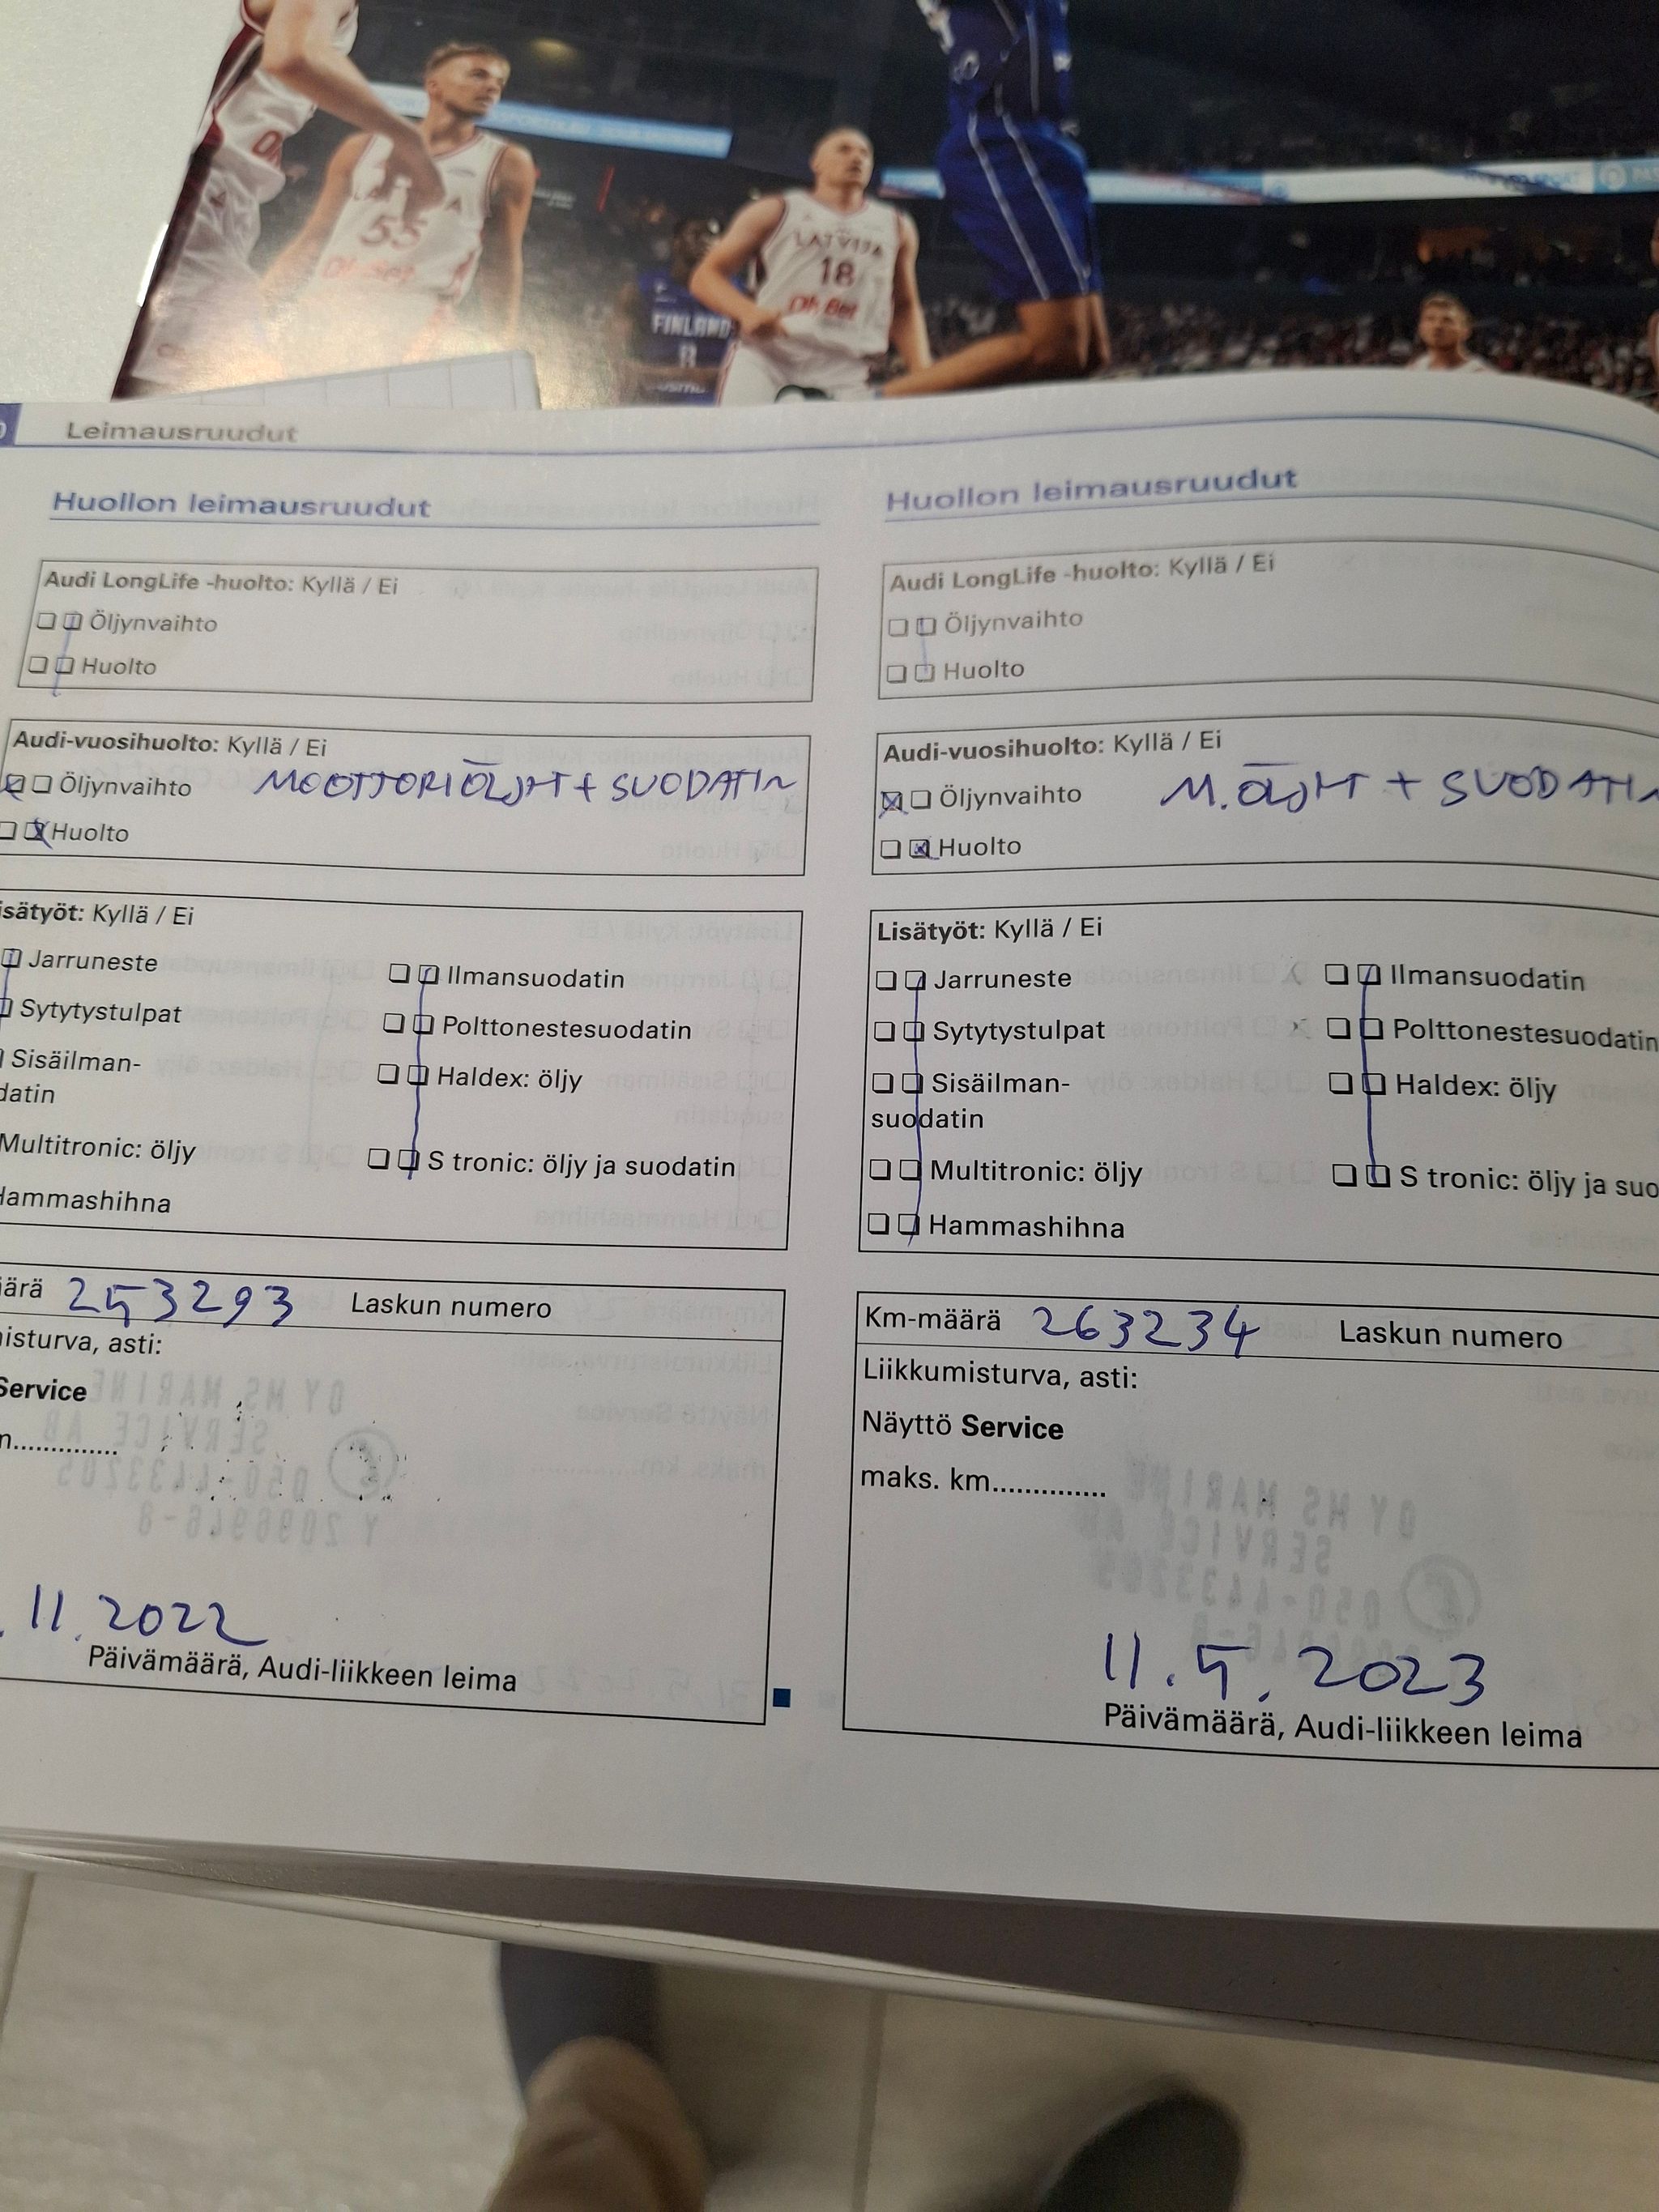 55
LATVIJA
18
OlyBet
FINLAND
Leimausruudut
Huollon leimausruudut
Audi LongLife -huolto: Kyllä / Ei
Öljynvaihto
Huolto
Audi-vuosihuolto: Kyllä / Ei
Öljynvaihto MOOTTORIÖLJYT + SUODATIN
Huolto
isätyöt: Kyllä / Ei
Jarruneste
Ilmansuodatin
Sytytystulpat
Polttonestesuodatin
Sisäilman-
datin
Haldex: öljy
Multitronic: öljy
S tronic: öljy ja suodatin
Hammashihna
äärä 253293 Laskun numero
isturva, asti:
Service
11.2022
Päivämäärä, Audi-liikkeen leima
Huollon leimausruudut
Audi LongLife -huolto: Kyllä / Ei
Öljynvaihto
Huolto
Audi-vuosihuolto: Kyllä / Ei
Öljynvaihto M.ÖLJYT + SUODATIN
Huolto
Lisätyöt: Kyllä / Ei
Jarruneste
Ilmansuodatin
Sytytystulpat
Polttonestesuodatin
Sisäilman-
suodatin
Haldex: öljy
Multitronic: öljy
S tronic: öljy ja suo
Hammashihna
Km-määrä 263234 Laskun numero
Liikkumisturva, asti:
Näyttö Service
maks. km..............
11.5.2023
Päivämäärä, Audi-liikkeen leima